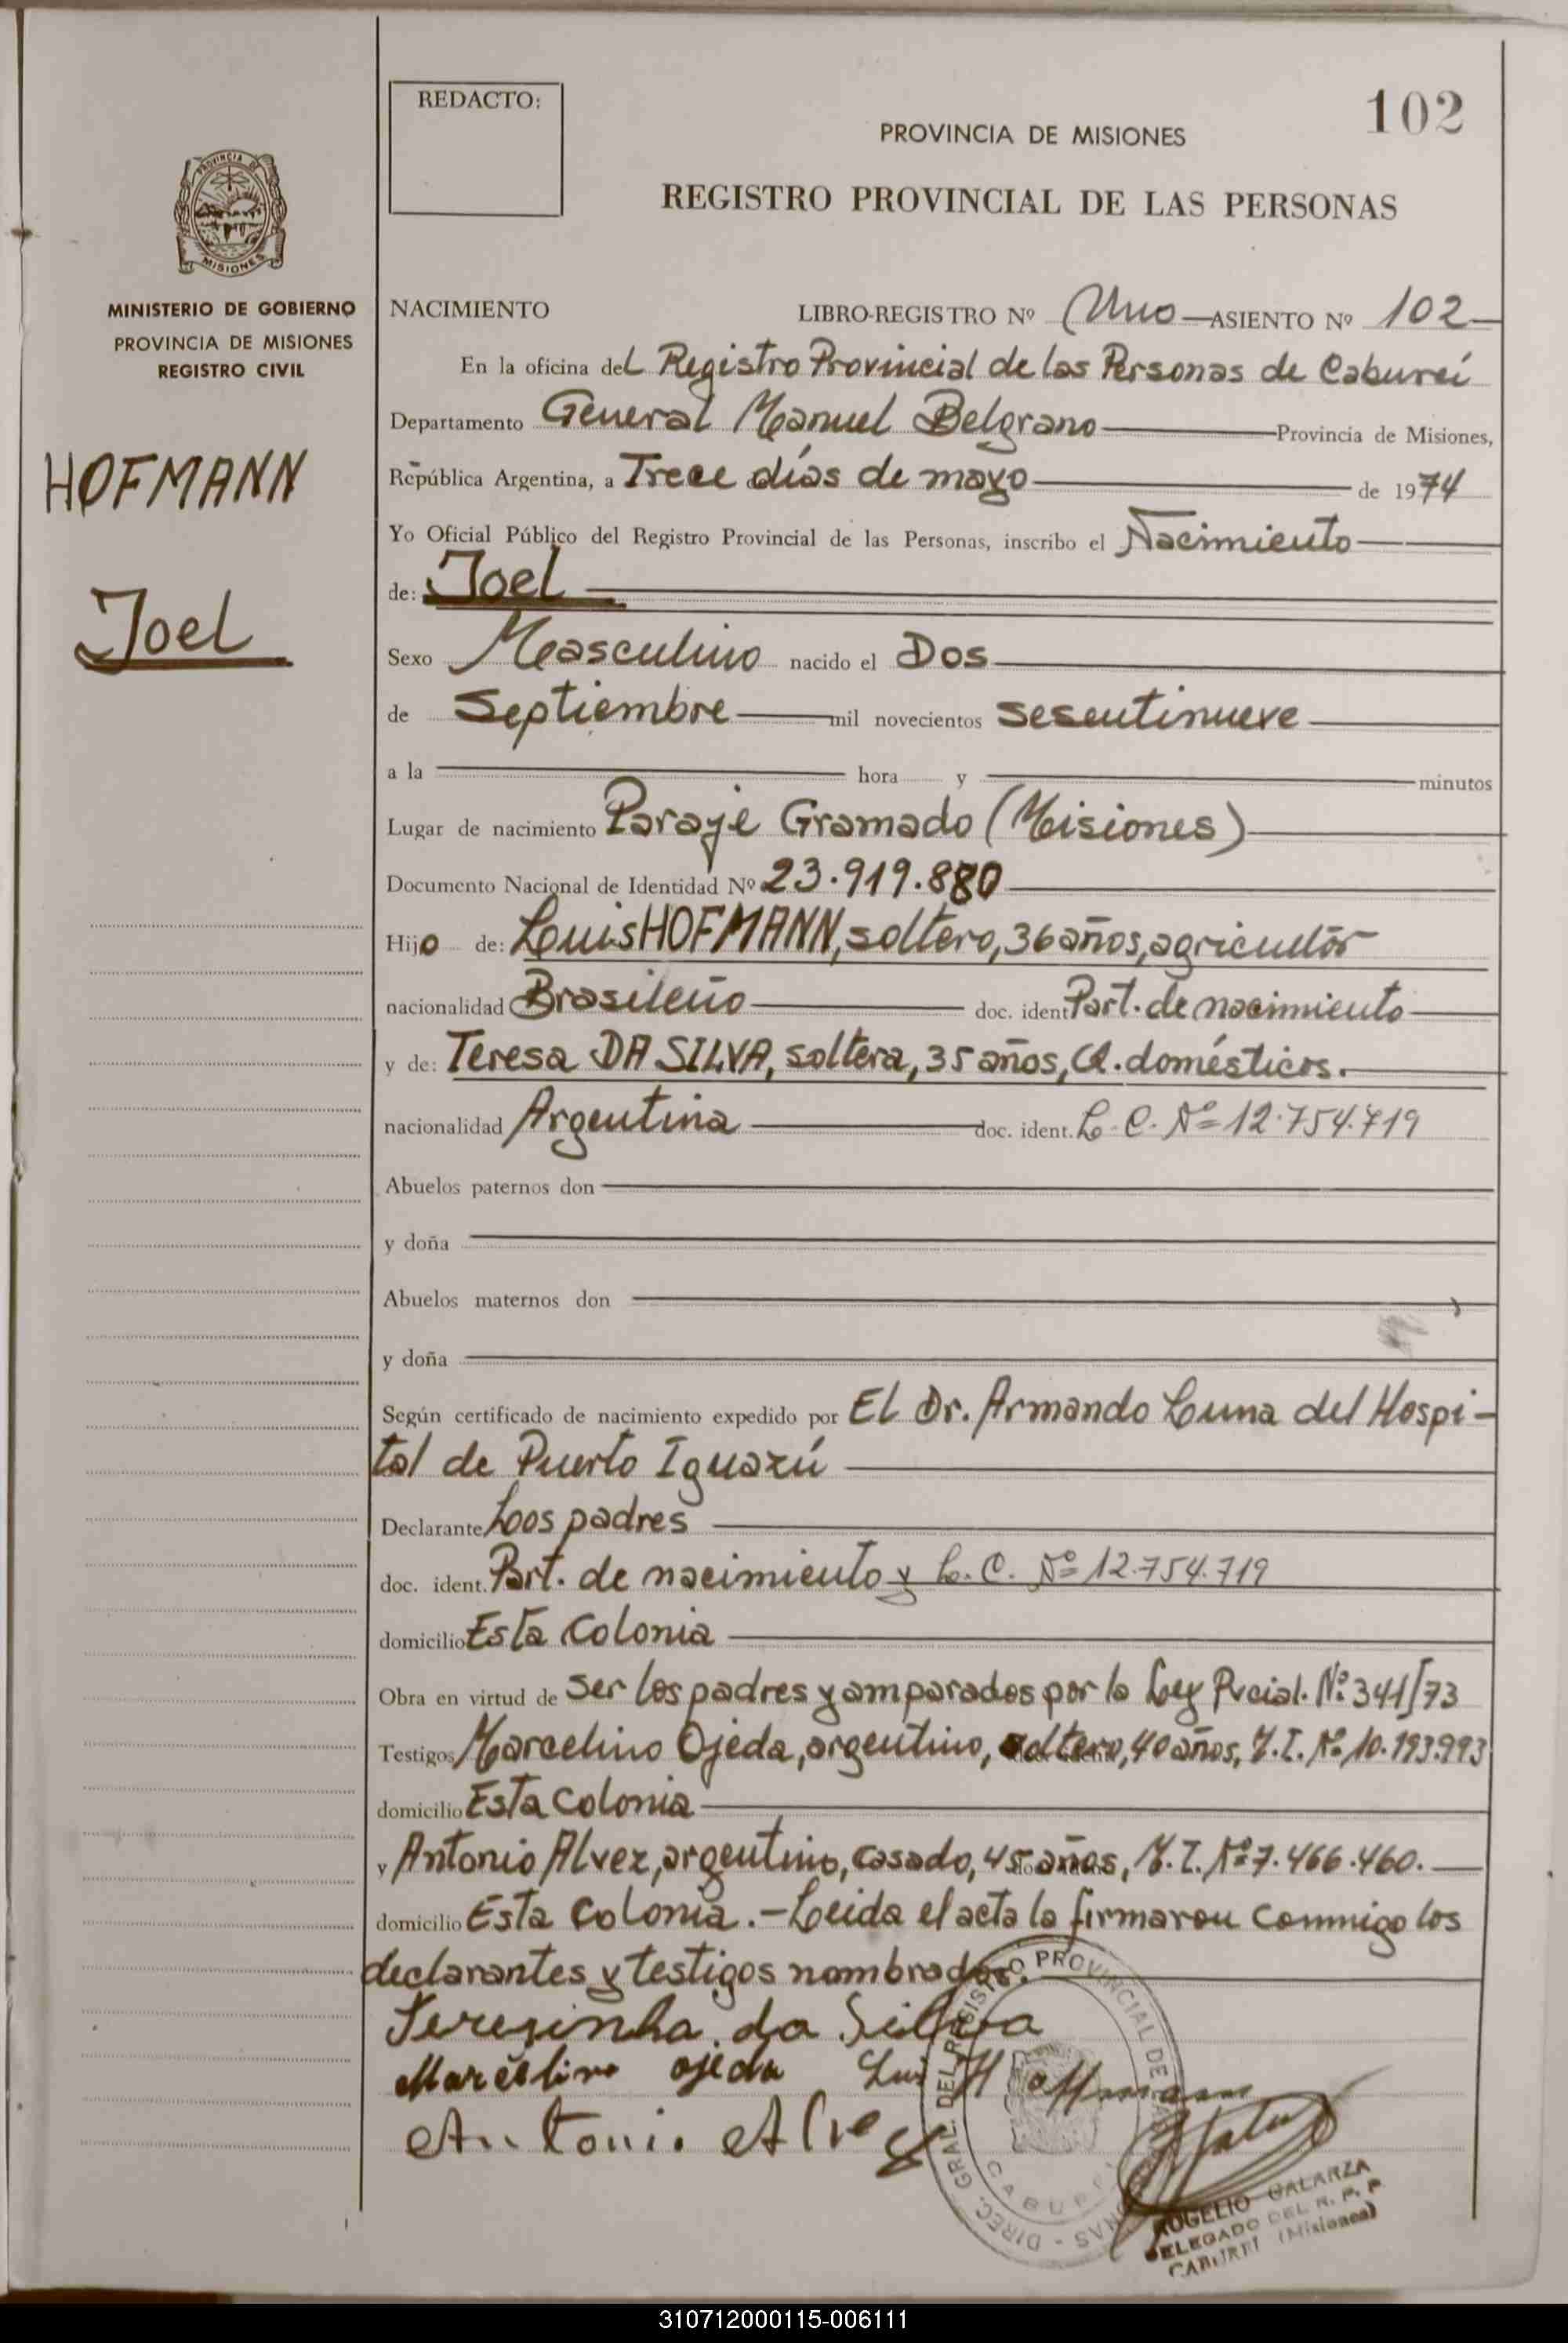 REDACTO:
102
PROVINCIA DE MISIONES
REGISTRO PROVINCIAL DE LAS PERSONAS
PROVINCIA DE
MISIONES
MINISTERIO DE GOBIERNO
PROVINCIA DE MISIONES
REGISTRO CIVIL
HOFMANN
Joel
NACIMIENTO LIBRO-REGISTRO Nº Uno ASIENTO Nº 102
En la oficina del Registro Provincial de las Personas de Caburei
Departamento General Manuel Belgrano Provincia de Misiones,
República Argentina, a Trece días de mayo de 1974
Yo Oficial Público del Registro Provincial de las Personas, inscribo el Nacimiento
de: Joel
Sexo Masculino nacido el Dos
de Septiembre mil novecientos sesentinueve
a la hora y minutos
Lugar de nacimiento Paraje Gramado (Misiones)
Documento Nacional de Identidad Nº 23.919.880
Hijo de: Luis HOFMANN, soltero, 36 años, agricultor
nacionalidad Brasileño doc. ident Part. de nacimiento
y de: Teresa DA SILVA, soltera, 35 años, Q. domésticos.
nacionalidad Argentina doc. ident. L. C. Nº 12.754.719
Abuelos paternos don
y doña
Abuelos maternos don
y doña
Según certificado de nacimiento expedido por El Dr. Armando Luna del Hospi-
tal de Puerto Iguazú
Declarante Loos padres
doc. ident. Part. de nacimiento y L. C. Nº 12.754.719
domicilio Esta Colonia
Obra en virtud de ser los padres y amparados por la Ley Pvcial. Nº 341/73
Testigos Marcelino Ojeda, argentino, soltero, 40 años, M.I. Nº 10.193.993
domicilio Esta Colonia
y Antonio Alvez, argentino, casado, 45 años, M.I. Nº 7.466.460.
domicilio Esta Colonia.- Leida el acta la firmaron conmigo los
declarantes y testigos nombrados.
Teresinha da Silva
Marcelino ojeda Luis Hoffmann
Antonio Alvez
DIREC. GRAL. DEL REGISTRO PROVINCIAL DE LAS PERSONAS
CABUREI
ROGELIO GALARZA
DELEGADO DEL R. P. P.
CABUREI (Misiones)
310712000115-006111